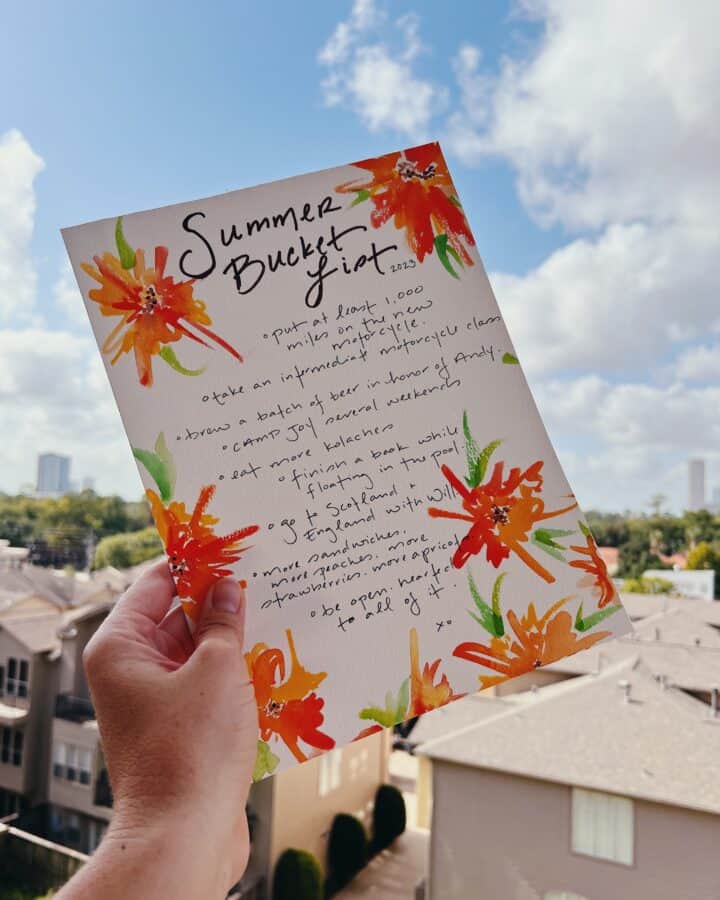 Summer
Bucket
List 2023
• put at least 1,000
miles on the new
motorcycle.
• take an intermediate motorcycle class
• brew a batch of beer in honor of Andy.
• CAMP JOY several weekends
• eat more kolaches
• finish a book while
floating in the pool.
• go to Scotland +
England with Will
• more sandwiches.
more peaches. more
strawberries. more apricots
• be open-hearted
to all of it.
xo